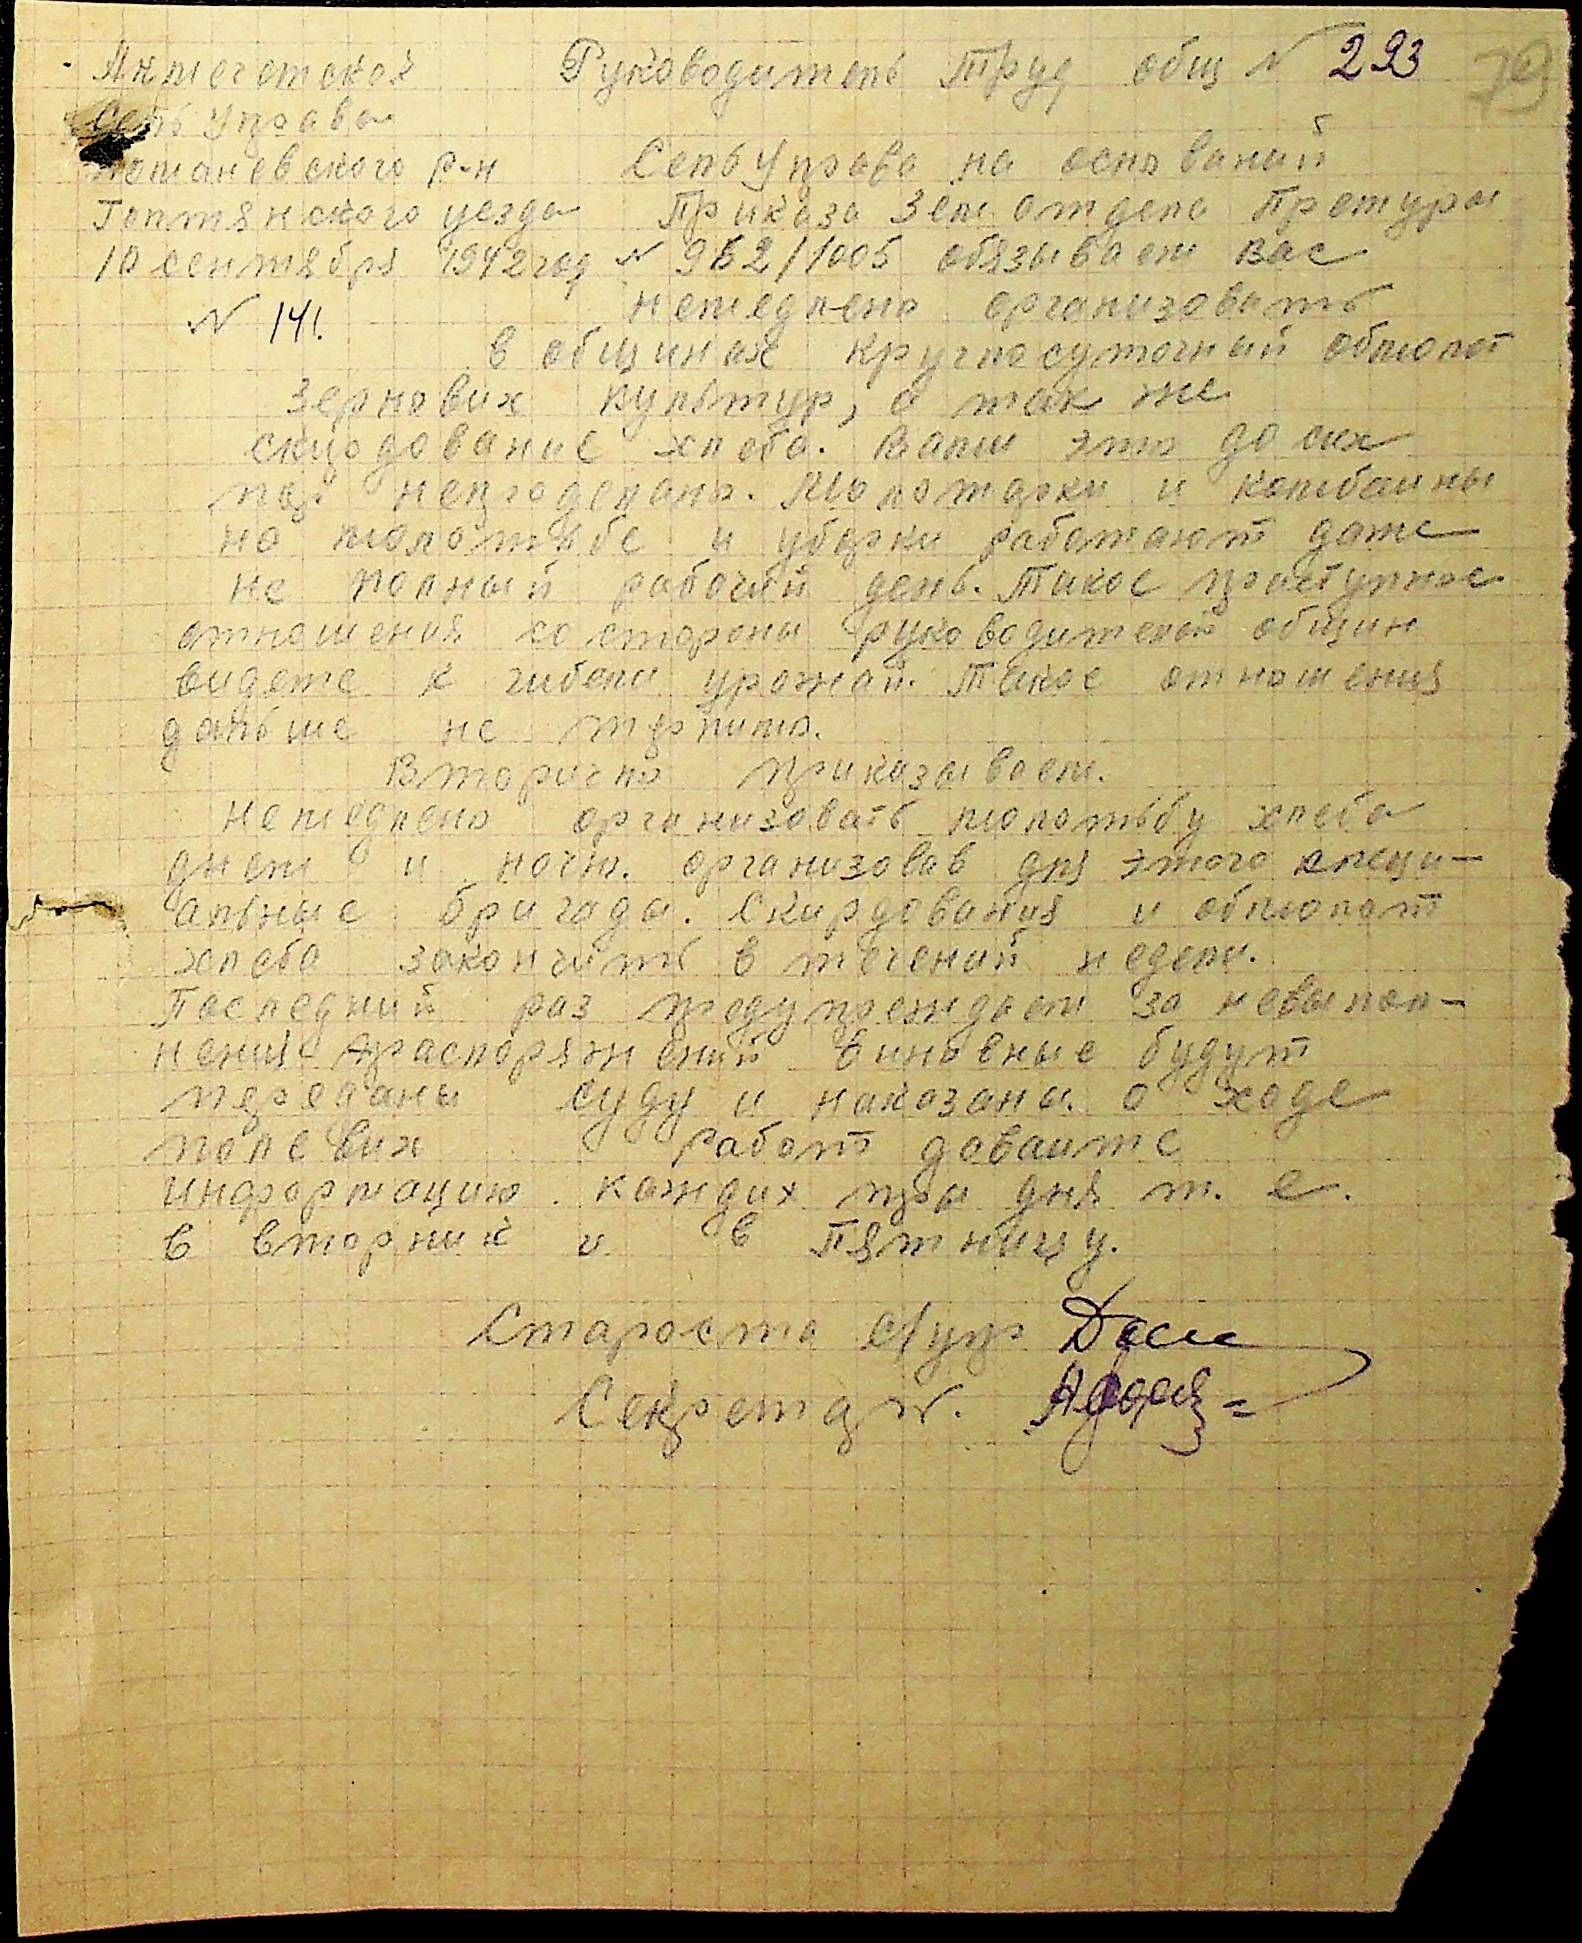 Анчегетской Руководитель Труд общ № 293
79
Сель Управа
Доманевского р-н СельУправа на оснований
Голтянского уезда Приказа Зем отдела Претуры
10 сентября 1942 год № 962/1005 обязывает вас
№ 141. немедлено организовать
в общинах круглосуточный обмолот
Зернових культур, а так же
скирдование хлеба. Вами это до сих
пор непроделано. Молотарки и комбаины
на молотьбе и уборки работают даже
не полный рабочий день. Такое преступное
отношения со стороны руководителей общин
видете к гибели урожай. Такое отношения
дальше не терпимо.
Вторично приказываем.
Немедлено организовать молотьбу хлеба
днем и ночю. организовав для этого специ-
альные бригады. Скирдования и обмолот
хлеба закончить в течений недели.
Последний раз предупреждаем за невыпол-
нения распоряжений виновные будут
переданы суду и наказаны. о ходе
полевих работ даваите
информацию каждих три дня т. е.
в вторник и в Пятницу.
Староста с/упр
Секретарь.